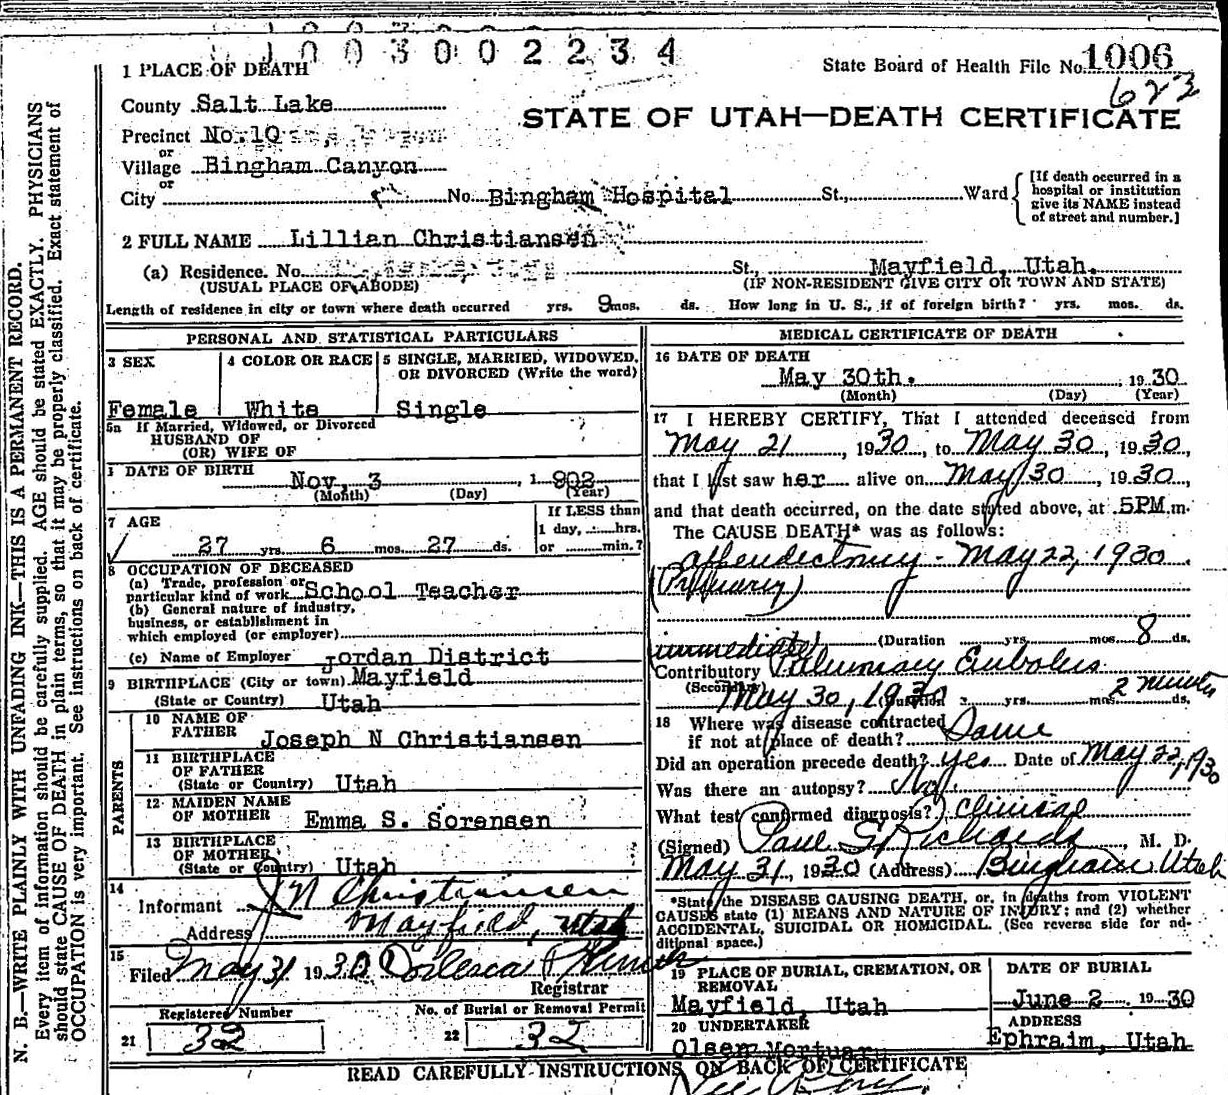 1 0 0 3 0 0 2 2 3 4
1 PLACE OF DEATH
State Board of Health File No. 1006
623
County Salt Lake
STATE OF UTAH—DEATH CERTIFICATE
Precinct No. 10
or
Village Bingham Canyon
or
City No. Bingham Hospital St., Ward
[If death occurred in a
hospital or institution
give its NAME instead
of street and number.]
2 FULL NAME Lillian Christiansen
(a) Residence. No. St., Mayfield, Utah.
(USUAL PLACE OF ABODE) (IF NON-RESIDENT GIVE CITY OR TOWN AND STATE)
Length of residence in city or town where death occurred yrs. 9 mos. ds. How long in U. S., if of foreign birth? yrs. mos. ds.
N. B.—WRITE PLAINLY WITH UNFADING INK—THIS IS A PERMANENT RECORD.
Every item of information should be carefully supplied. AGE should be stated EXACTLY. PHYSICIANS
should state CAUSE OF DEATH in plain terms, so that it may be properly classified. Exact statement of
OCCUPATION is very important. See instructions on back of certificate.
PERSONAL AND STATISTICAL PARTICULARS
3 SEX
Female
4 COLOR OR RACE
White
5 SINGLE, MARRIED, WIDOWED,
OR DIVORCED (Write the word)
Single
5a If Married, Widowed, or Divorced
HUSBAND OF
(OR) WIFE OF
DATE OF BIRTH Nov. 3, 1902
(Month) (Day) (Year)
7 AGE
27 yrs. 6 mos. 27 ds.
If LESS than
1 day, hrs.
or min.?
8 OCCUPATION OF DECEASED
(a) Trade, profession or
particular kind of work School Teacher
(b) General nature of industry,
business, or establishment in
which employed (or employer)
(c) Name of Employer Jordan District
9 BIRTHPLACE (City or town) Mayfield
(State or Country) Utah
PARENTS
10 NAME OF
FATHER Joseph N Christiansen
11 BIRTHPLACE
OF FATHER
(State or Country) Utah
12 MAIDEN NAME
OF MOTHER Emma S. Sorensen
13 BIRTHPLACE
OF MOTHER
(State or Country) Utah
14
Informant J N Christiansen
Address Mayfield, Utah
15
Filed May 31 1930
Registrar
Registered Number
21 32
No. of Burial or Removal Permit
22 32
MEDICAL CERTIFICATE OF DEATH
16 DATE OF DEATH
May 30th. 1930
(Month) (Day) (Year)
17 I HEREBY CERTIFY, That I attended deceased from
May 21, 1930, to May 30, 1930.
that I last saw her alive on May 30, 1930
and that death occurred, on the date stated above, at 5PM m.
The CAUSE DEATH* was as follows:
appendectomy - May 22, 1930
(Primary)
(Duration yrs. mos. 8 ds.
(immediate)
Contributory Pulmonary Embolus
(Secondary)
May 30, 1930 (Duration yrs. mos. ds. 2 minutes
18 Where was disease contracted
if not at place of death? Same
Did an operation precede death? Yes Date of May 22, 1930
Was there an autopsy? No.
What test confirmed diagnosis? Clinical
(Signed) Paul S. Richards, M. D.
May 31, 1930 (Address) Bingham Utah
*State the DISEASE CAUSING DEATH, or, in deaths from VIOLENT
CAUSES state (1) MEANS AND NATURE OF INJURY; and (2) whether
ACCIDENTAL, SUICIDAL OR HOMICIDAL. (See reverse side for ad-
ditional space.)
19 PLACE OF BURIAL, CREMATION, OR
REMOVAL
Mayfield, Utah
DATE OF BURIAL
June 2 1930
20 UNDERTAKER
Olsen Mortuary
ADDRESS
Ephraim, Utah
READ CAREFULLY INSTRUCTIONS ON BACK OF CERTIFICATE